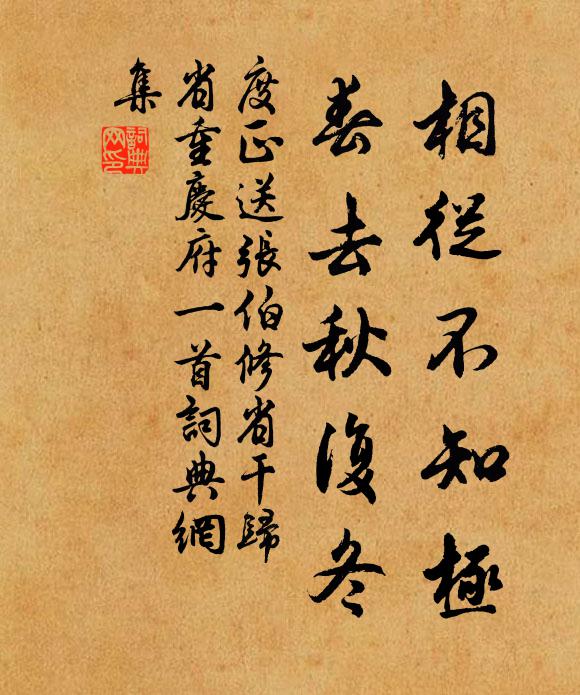 相從不知極
春去秋復冬
度正送張伯修省干歸
省重慶府一首詞典網
集
詞典網印